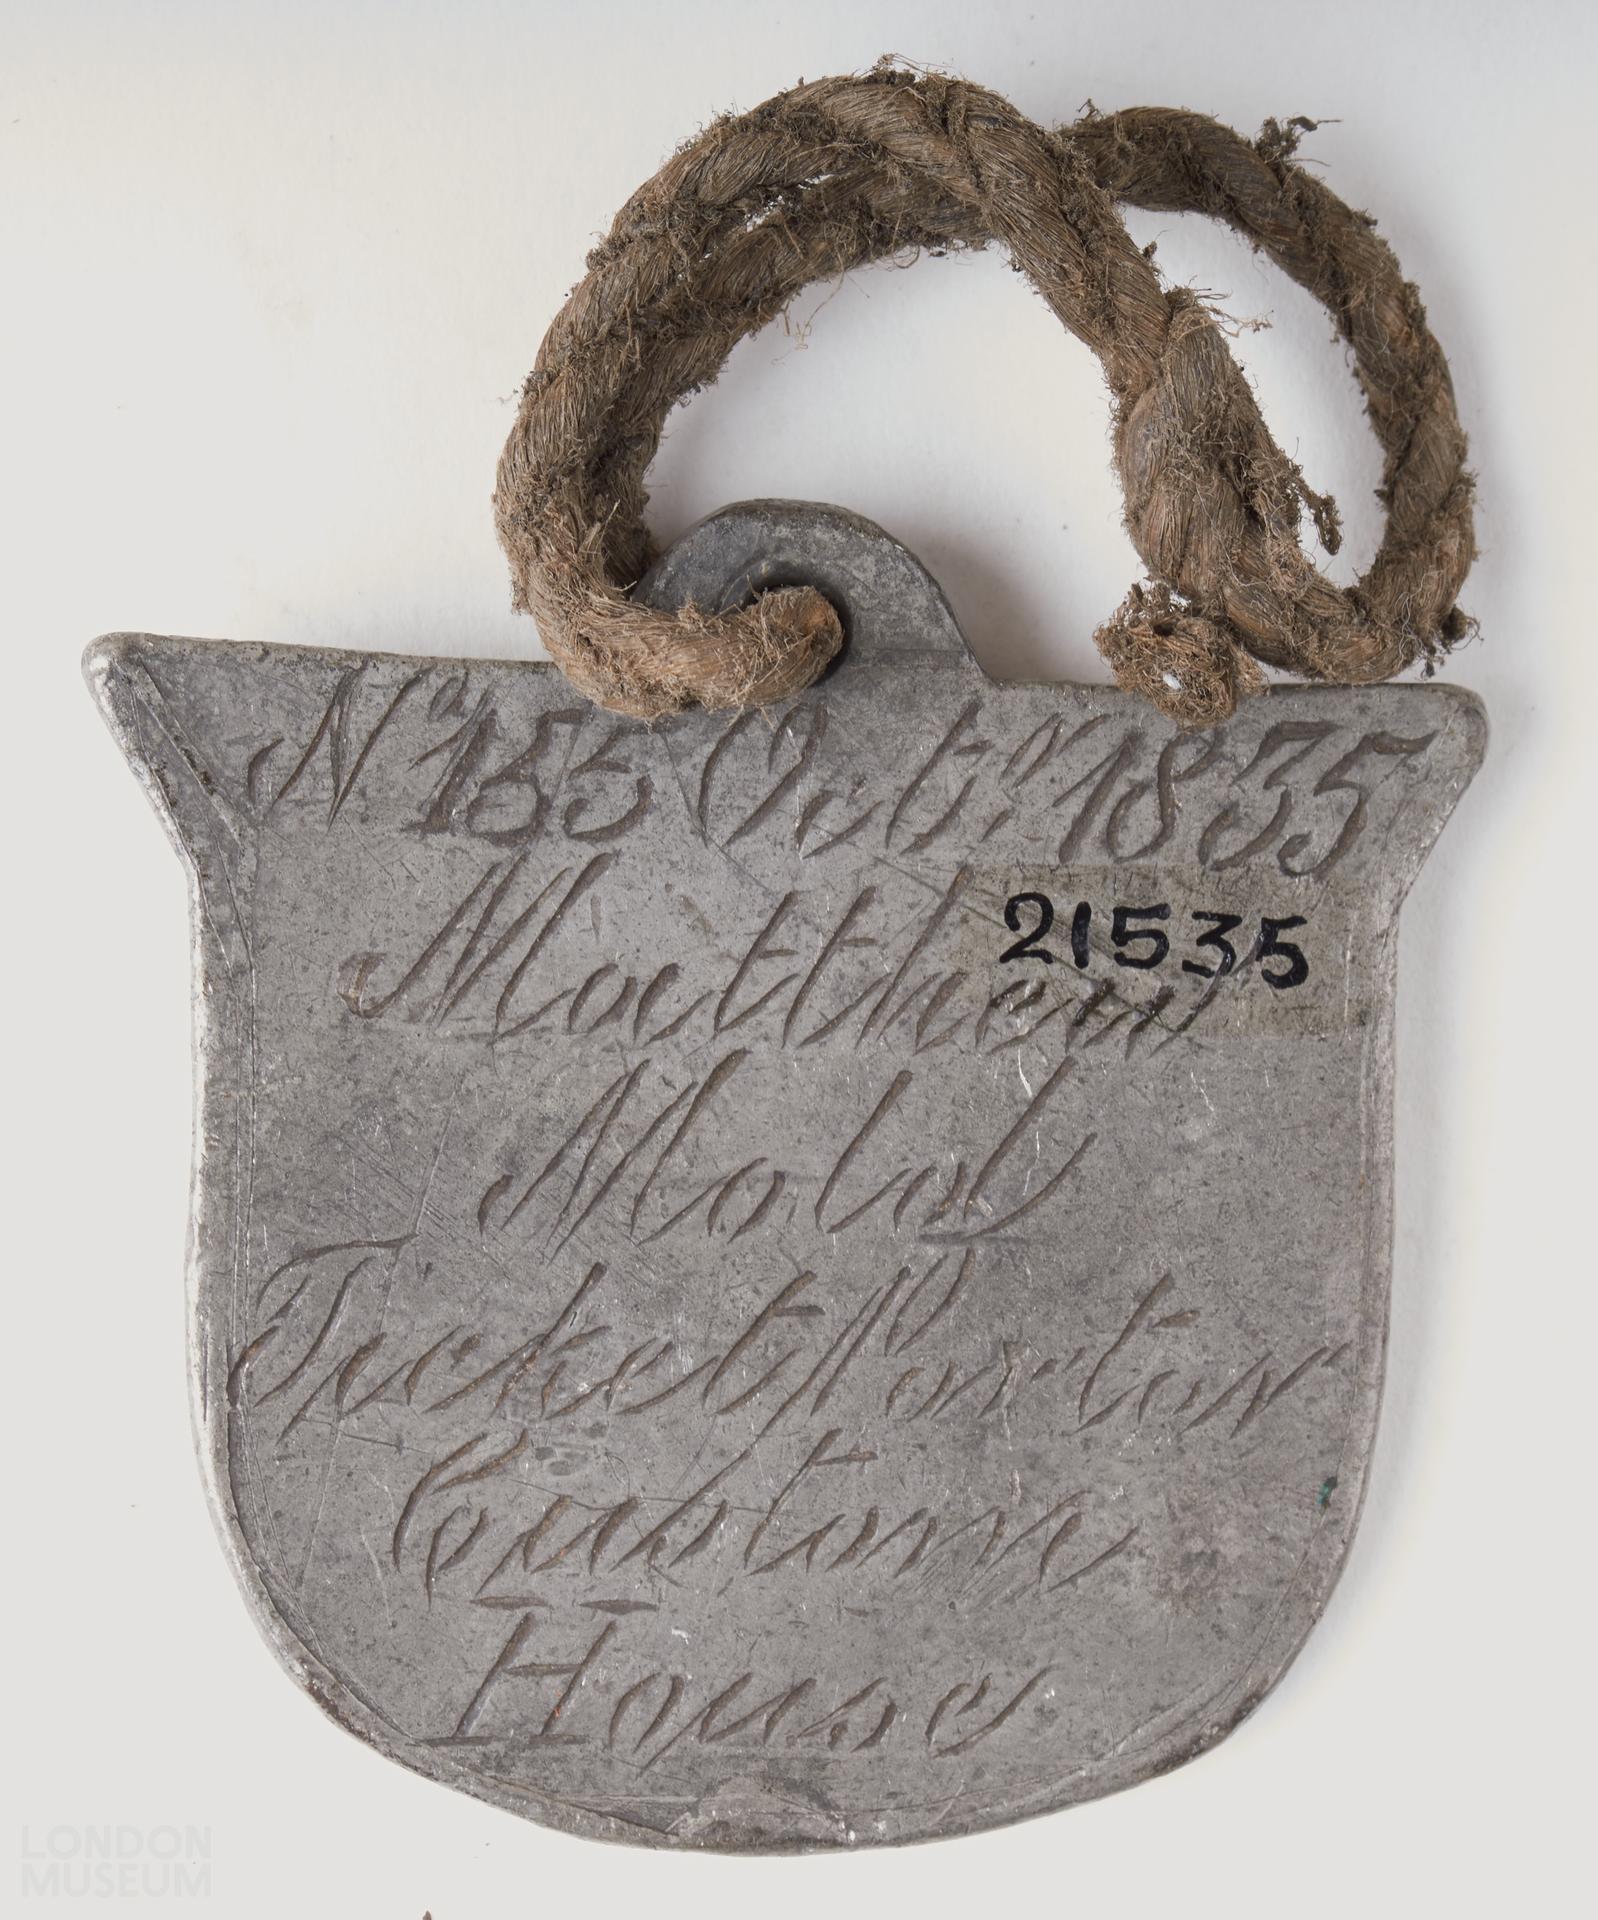 No 155 Octr 1835
21535
Matthew
Mold
Ticket Porter
Custom
House
LONDON
MUSEUM